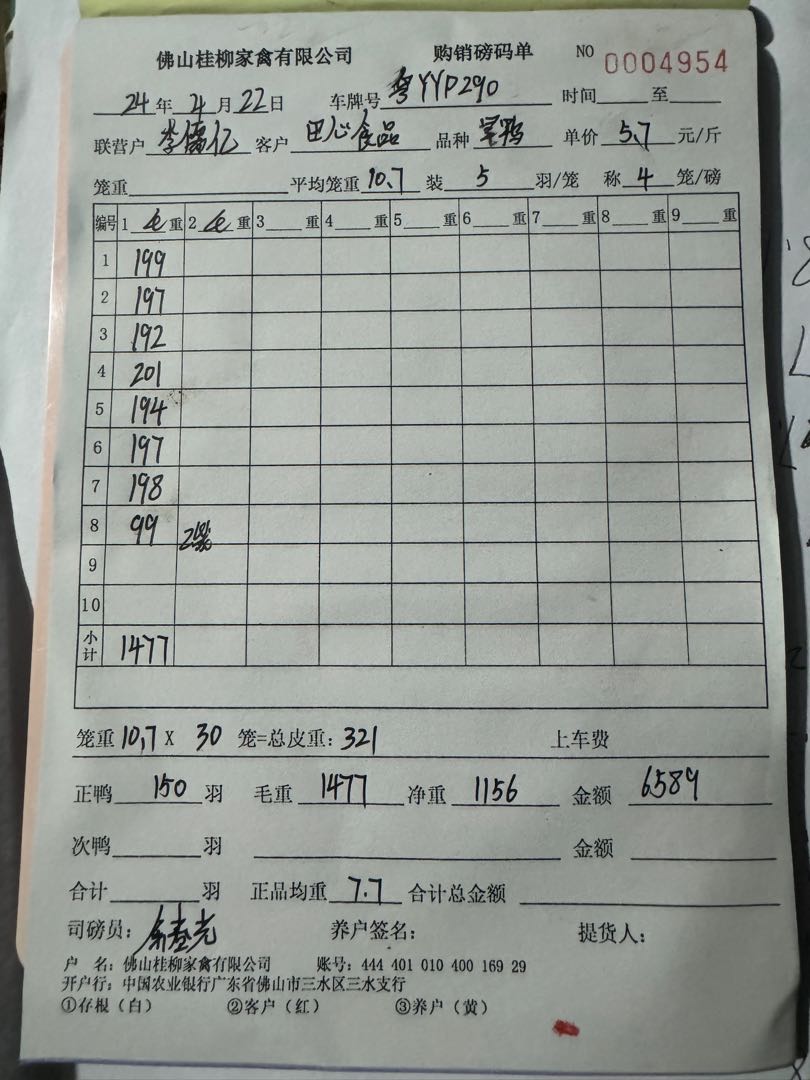 佛山桂柳家禽有限公司 购销磅码单 NO 0004954
24年4月22日 车牌号 粤YYP290 时间 至
联营户 李儒亿 客户 田心食品 品种 单价 5.7 元/斤
笼重 平均笼重 10.7 装 5 羽/笼 称 4 笼/磅
编号 1 毛 重 2 毛 重 3 重 4 重 5 重 6 重 7 重 8 重 9 重
1 199
2 197
3 192
4 201
5 194
6 197
7 198
8 99 2笼
9
10
小计 1477
笼重 10.7 X 30 笼=总皮重: 321 上车费
正鸭 150 羽 毛重 1477 净重 1156 金额 6589
次鸭 羽 金额
合计 羽 正品均重 7.7 合计总金额
司磅员: 养户签名: 提货人:
户 名: 佛山桂柳家禽有限公司 账号: 444 401 010 400 169 29
开户行: 中国农业银行广东省佛山市三水区三水支行
①存根(白) ②客户(红) ③养户(黄)